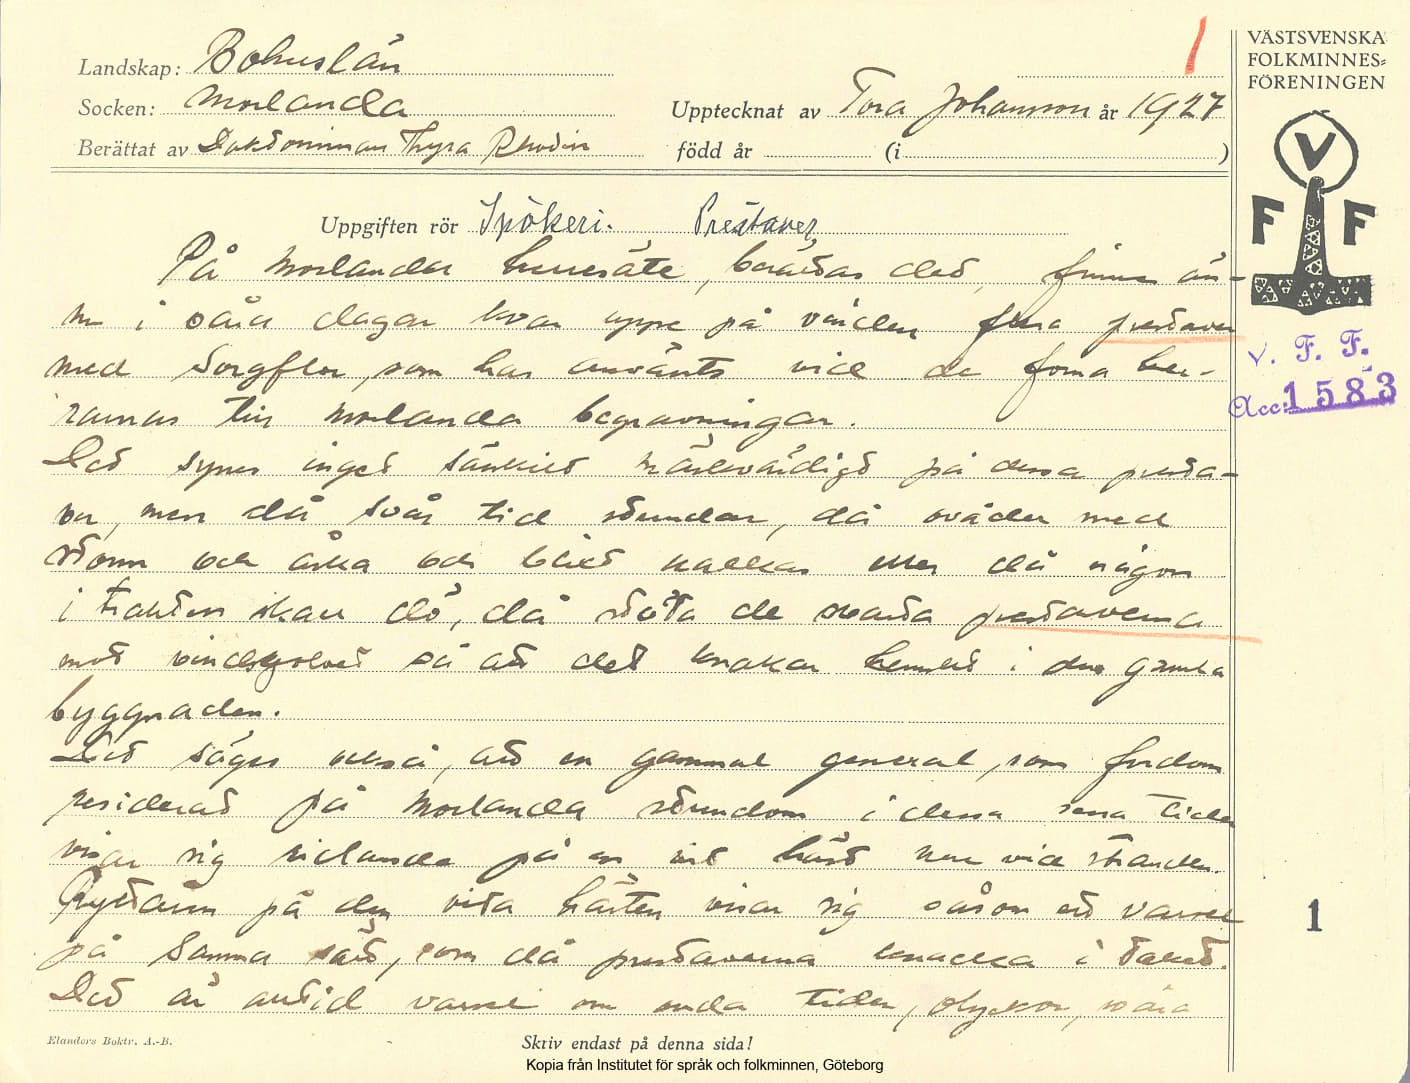 1
VÄSTSVENSKA
FOLKMINNES-
FÖRENINGEN
Landskap: Bohuslän
Socken: Morlanda
Upptecknat av Tora Johansson år 1927
Berättat av Doktorinnan Thyra Rhodin
född år (i )
V
F F
Uppgiften rör Spökeri. Prestaver
På Morlanda herresäte, berättas det, finnes än-
nu i våra dagar kvar uppe på vinden flera prestaver
med Sorgflor, som har använts vid de forna her-
rarnas till Morlanda begravningar.
V. F. F.
Acc: 1583
Det synes inget särskilt märkvärdigt på dessa presta-
ver, men då svår tid stundar, då oväder med
storm och åska och blixt nalkas eller då någon
i trakten skall dö, då stöta de svarta prestaverna
mot vindsgolvet så att det knakar hemskt i den gamla
byggnaden.
Det säges också, att en gammal general, som fordom
residerat på Morlanda stundom i dessa sena tider
visar sig ridande på en vit häst nere vid stranden.
Ryttaren på den vita hästen visar sig såsom ett varsel
på samma sätt, som då prestaverna knacka i taket.
Det är alltid varsel om onda tider, olyckor, svåra
1
Elanders Boktr. A.-B.
Skriv endast på denna sida!
Kopia från Institutet för språk och folkminnen, Göteborg